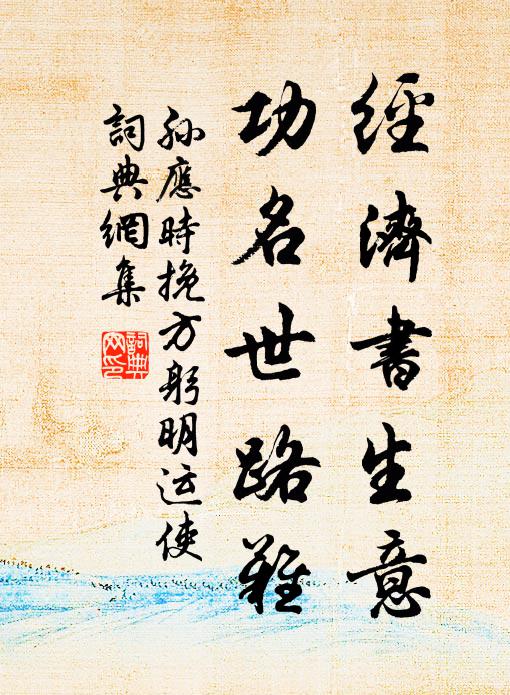 經濟書生意
功名世路難
孫應時挽方躬明运使
詞典網集
詞典
网印